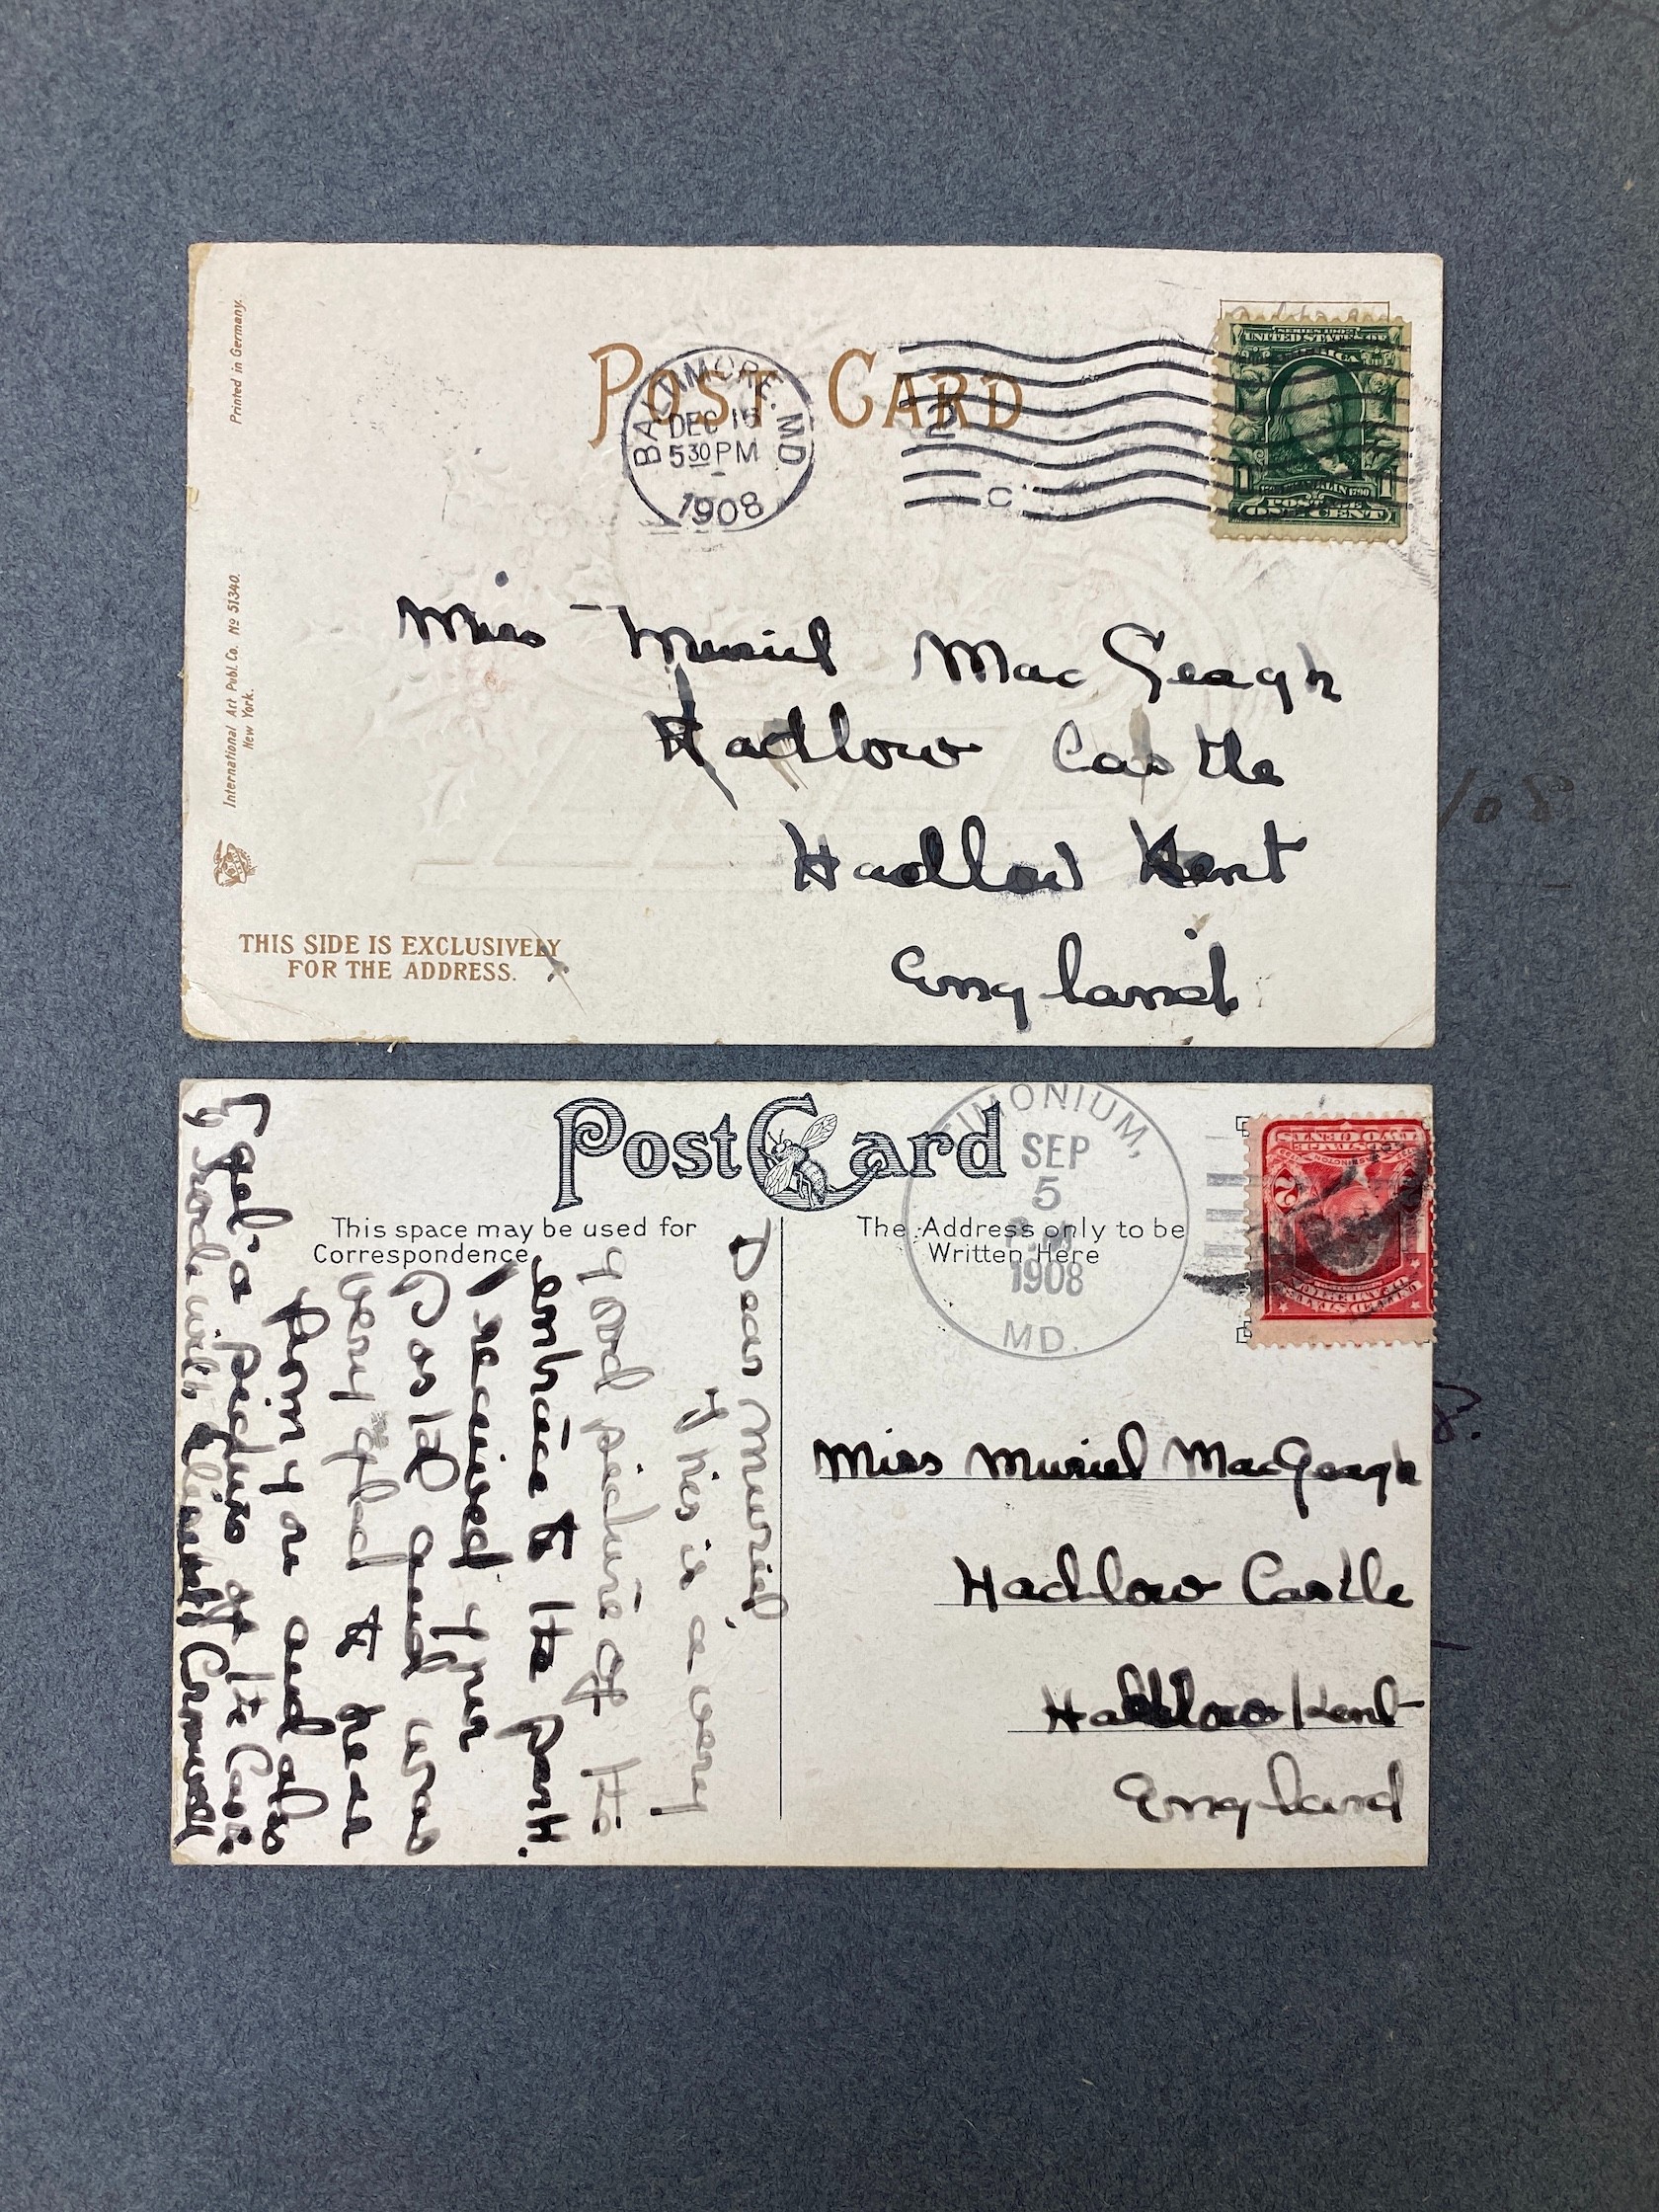 Printed in Germany.
International Art Publ. Co. No 51340.
New York.
POST CARD
BALTIMORE. MD
DEC 15
5 30 PM
1908
2
C
SERIES 1902
UNITED STATES OF
AMERICA
1 1
FRANKLIN 1790
POSTAGE
ONE CENT
Miss Muriel MacGeagh
Hadlow Castle
Hadlow Kent
England
THIS SIDE IS EXCLUSIVELY
FOR THE ADDRESS.
108
Post Card
This space may be used for
Correspondence
The Address only to be
Written Here
TIMONIUM,
SEP
5
1908
MD.
2
TWO CENTS
Dear Muriel,
This is a very
good picture of the
entrance to the park.
I received your
Postal and was
very glad to hear
from you and also
to get a picture of the Castle
Cromwell
Miss Muriel MacGeagh
Hadlow Castle
Hadlow Kent
England
8.